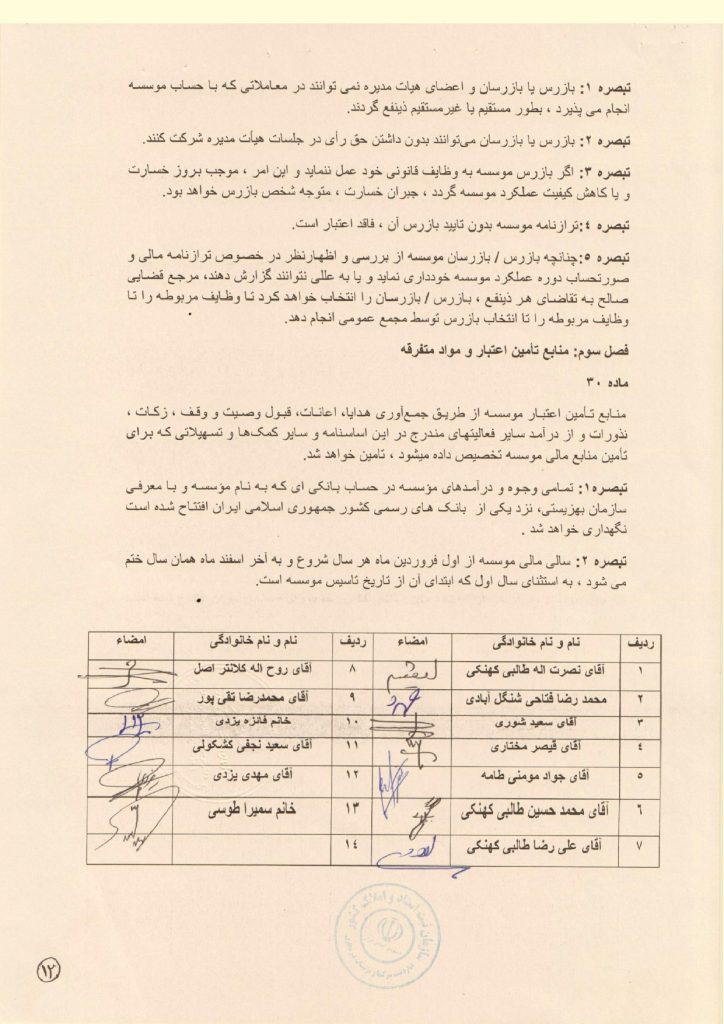 تبصره ۱: بازرس یا بازرسان و اعضای هیات مدیره نمی توانند در معاملاتی که با حساب موسسه
انجام می پذیرد ، بطور مستقیم یا غیرمستقیم ذینفع گردند.
تبصره ۲: بازرس یا بازرسان می‌توانند بدون داشتن حق رأی در جلسات هیأت مدیره شرکت کنند.
تبصره ۳: اگر بازرس موسسه به وظایف قانونی خود عمل ننماید و این امر ، موجب بروز خسارت
و یا کاهش کیفیت عملکرد موسسه گردد ، جبران خسارت ، متوجه شخص بازرس خواهد بود.
تبصره ٤:ترازنامه موسسه بدون تایید بازرس آن ، فاقد اعتبار است.
تبصره ۵:چنانچه بازرس / بازرسان موسسه از بررسی و اظهارنظر در خصوص ترازنامه مالی و
صورتحساب دوره عملکرد موسسه خودداری نماید و یا به عللی نتوانند گزارش دهند، مرجع قضایی
صالح به تقاضای هر ذینفع ، بازرس / بازرسان را انتخاب خواهد کرد تا وظایف مربوطه را تا
وظایف مربوطه را تا انتخاب بازرس توسط مجمع عمومی انجام دهد.
فصل سوم: منابع تأمین اعتبار و مواد متفرقه
ماده ۳۰
منابع تأمین اعتبار موسسه از طریق جمع‌آوری هدایا، اعانات، قبول وصیت و وقف ، زکات ،
نذورات و از درآمد سایر فعالیتهای مندرج در این اساسنامه و سایر کمک‌ها و تسهیلاتی که برای
تأمین منابع مالی موسسه تخصیص داده میشود ، تامین خواهد شد.
تبصره۱: تمامی وجوه و درآمدهای مؤسسه در حساب بانکی ای که به نام مؤسسه و با معرفی
سازمان بهزیستی، نزد یکی از بانک های رسمی کشور جمهوری اسلامی ایران افتتاح شده است
نگهداری خواهد شد .
تبصره ۲: سالی مالی موسسه از اول فروردین ماه هر سال شروع و به آخر اسفند ماه همان سال ختم
می شود ، به استثنای سال اول که ابتدای آن از تاریخ تاسیس موسسه است.
ردیف نام و نام خانوادگی امضاء ردیف نام و نام خانوادگی امضاء
۱ آقای نصرت اله طالبی کهنکی ۸ آقای روح اله کلانتر اصل
۲ محمد رضا فتاحی شنگل آبادی ۹ آقای محمدرضا تقی پور
۳ آقای سعید شوری ۱۰ خانم فائزه یزدی
٤ آقای قیصر مختاری ۱۱ آقای سعید نجفی کشکولی
۵ آقای جواد مومنی طامه ۱۲ آقای مهدی یزدی
۶ آقای محمد حسین طالبی کهنکی ۱۳ خانم سمیرا طوسی
۷ آقای علی رضا طالبی کهنکی ۱٤
سازمان ثبت اسناد و املاک کشور
۱۲